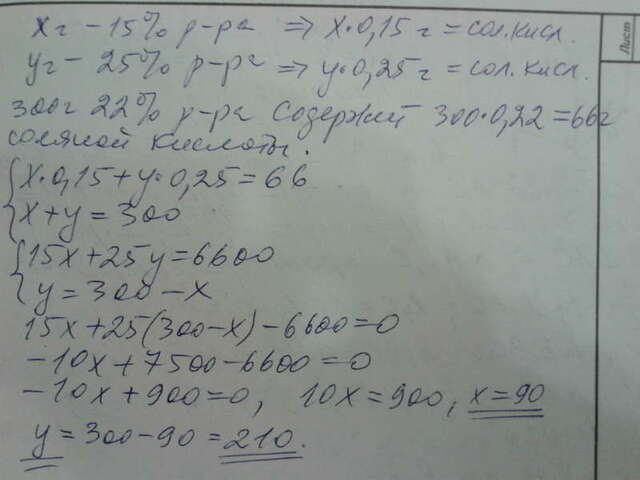 xг – 15% р-ра ⇒ x·0,15 г = сол. кисл.
yг – 25% р-ра ⇒ y·0,25 г = сол. кисл.
300г 22% р-ра содержит 300·0,22=66г
соляной кислоты.
x·0,15+y·0,25=66
x+y=300
15x+25y=6600
y=300-x
15x+25(300-x)-6600=0
-10x+7500-6600=0
-10x+900=0, 10x=900, x=90
y=300-90=210.
Лист